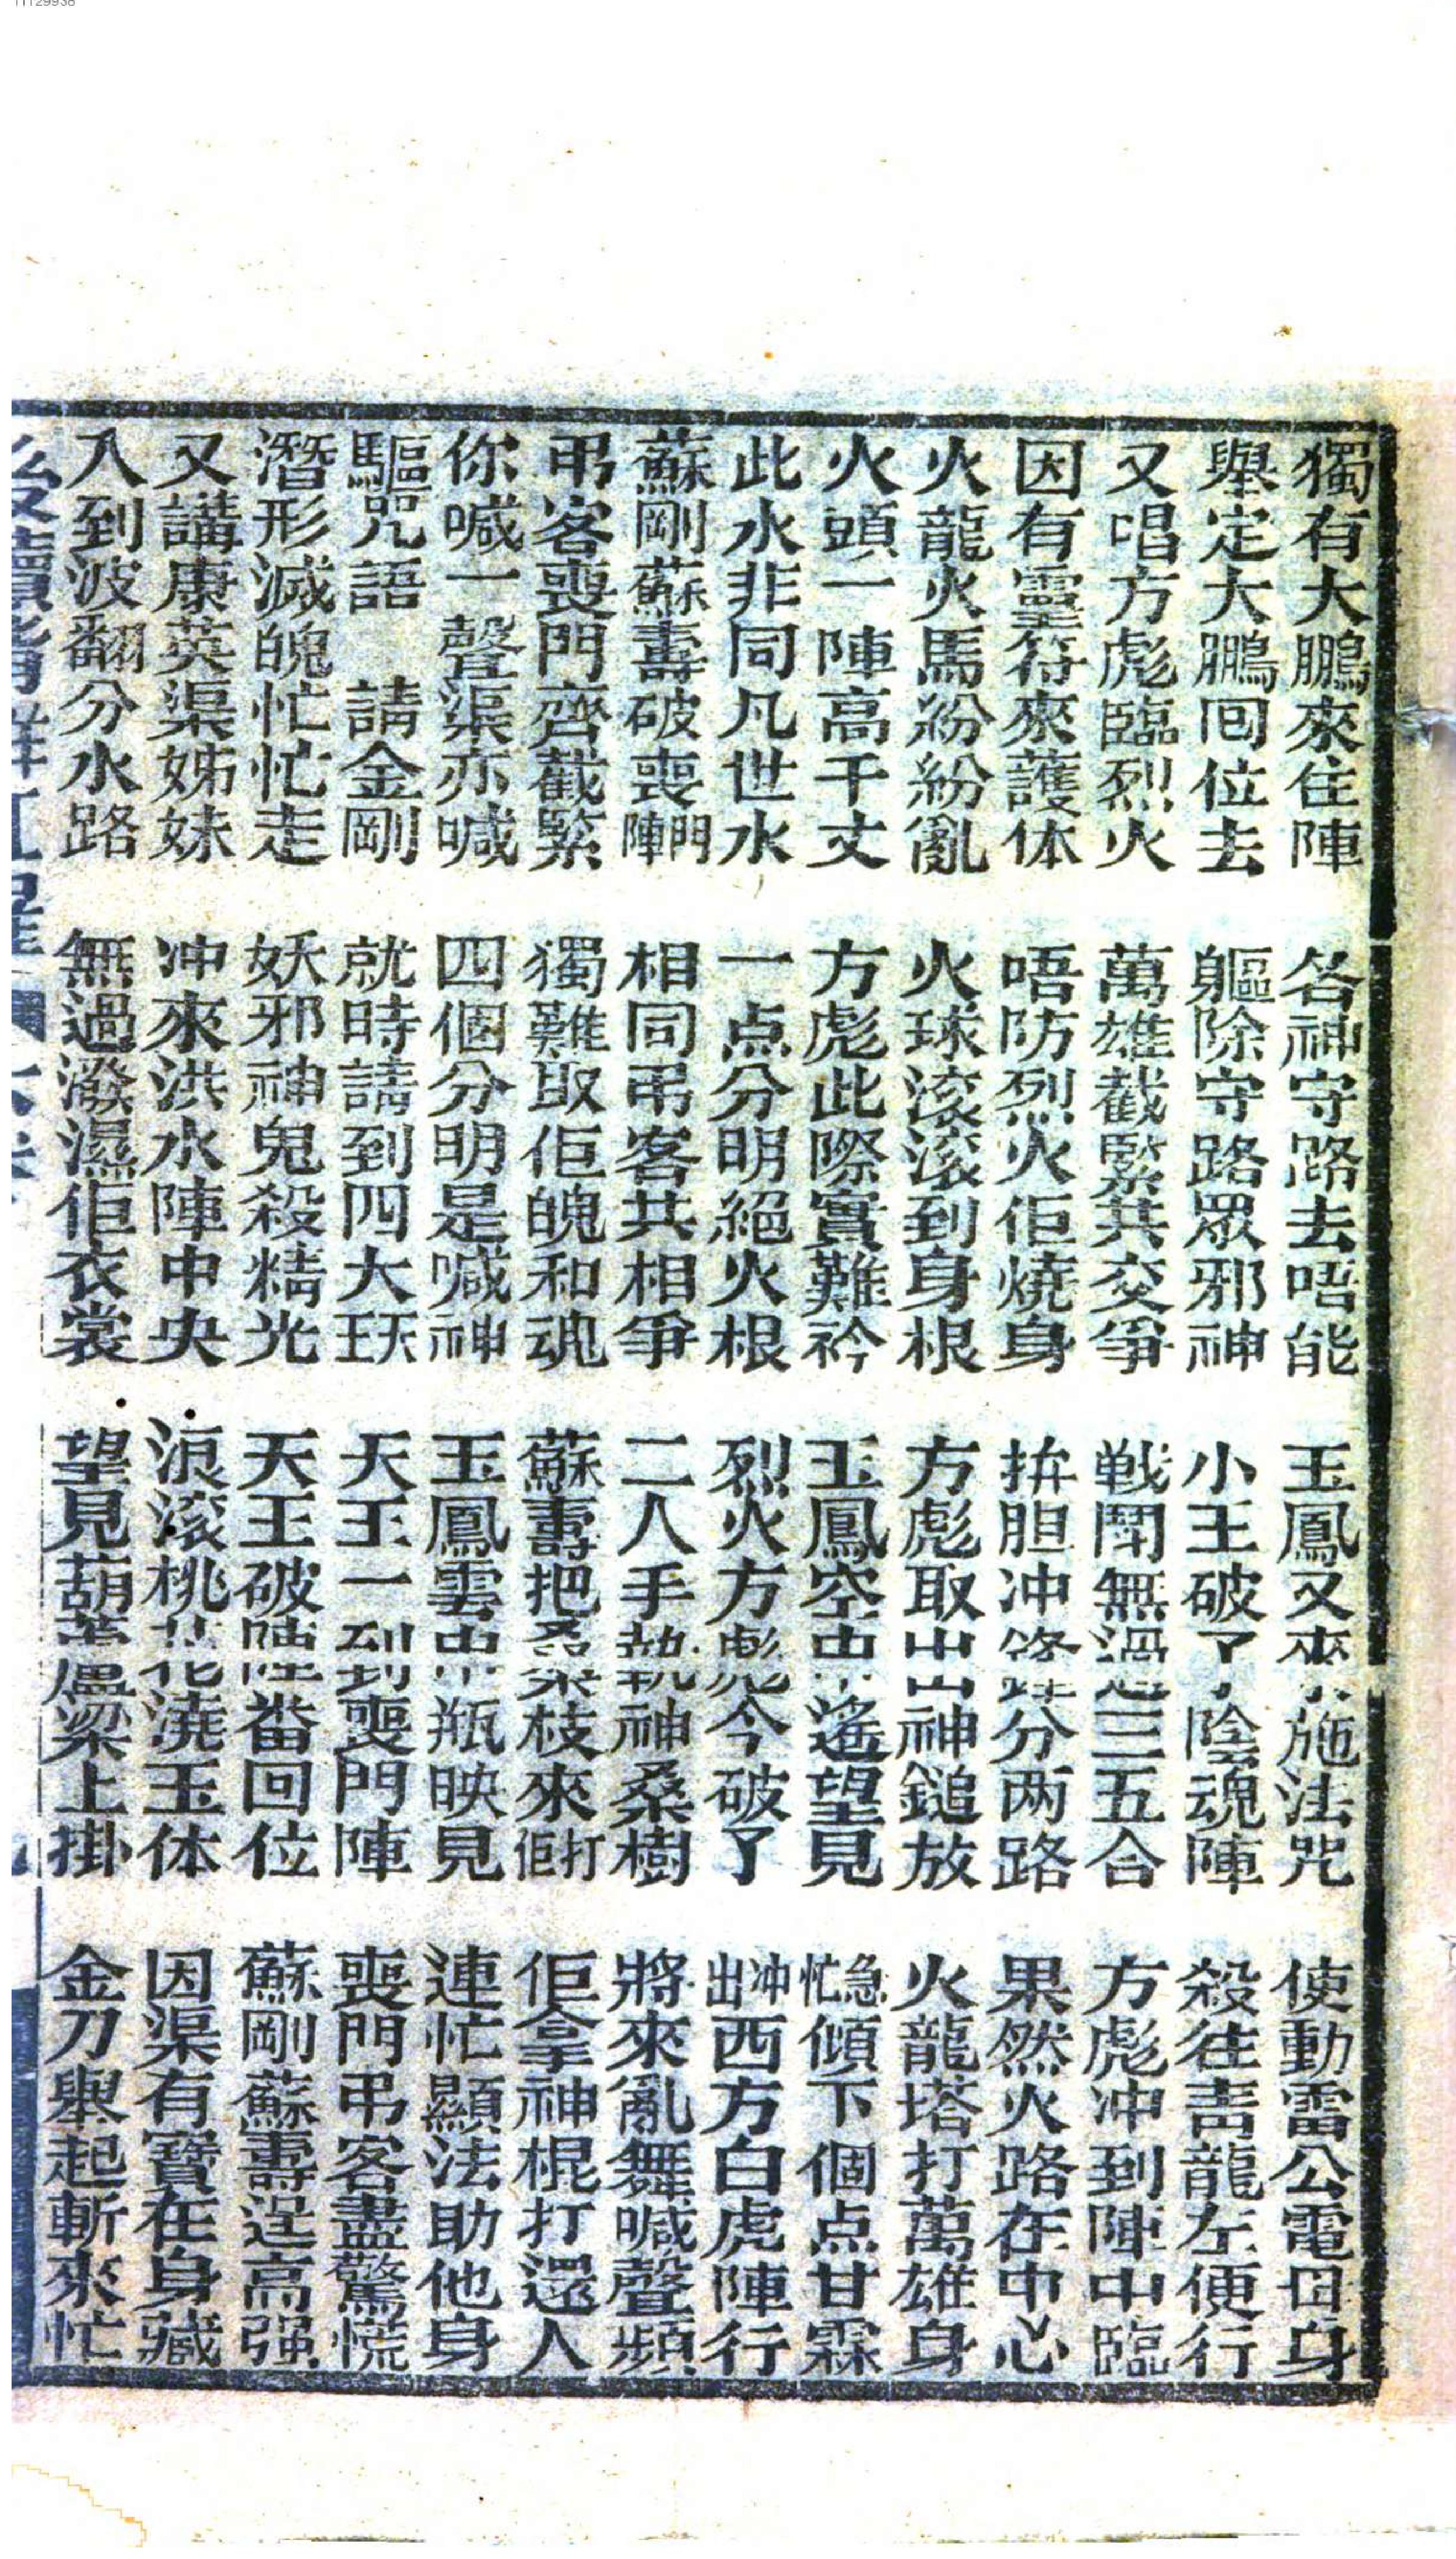 獨有大鵬來住陣 各神守路去唔能 玉鳳又來施法咒 使動雷公電母身
舉定大鵬囘位去 軀除守路眾邪神 小王破了陰魂陣 殺往青龍左便行
又唱方彪臨烈火 萬雄截緊共交爭 戰鬪無過三五合 方彪冲到陣中臨
因有靈符來護体 唔防烈火佢燒身 拚胆冲鋒分两路 果然火路在中心
火龍火馬紛紛亂 火球滚滚到身根 方彪取出神鎚放 火龍塔打萬雄身
火頭一陣高千丈 方彪此際實難衿 玉鳳空中遙望見 急忙傾下個点甘霖
此水非同凡世水 一点分明絕火根 烈火方彪今破了 冲出西方白虎陣行
蘇剛蘇壽破喪門陣 相同弔客共相爭 二人手執神桑樹 將來亂舞喊聲頻
弔客喪門齊截緊 獨難取佢魄和魂 蘇壽把桑枝來打佢 佢拿神棍打還人
你喊一聲渠亦喊 四個分明是喊神 玉鳳雲中瓶映見 連忙顯法助他身
驅咒語 請金剛 就時請到四大天王 天王一到喪門陣 喪門弔客盡驚慌
潛形滅魄忙忙走 妖邪神鬼殺精光 天王破陣畨回位 蘇剛蘇壽逞高强
又講康英渠姊妹 冲來洪水陣中央 浪滚桃花澆玉体 因渠有寶在身藏
入到波翻分水路 無過潑濕佢衣裳 望見葫蘆梁上掛 金刀舉起斬來忙